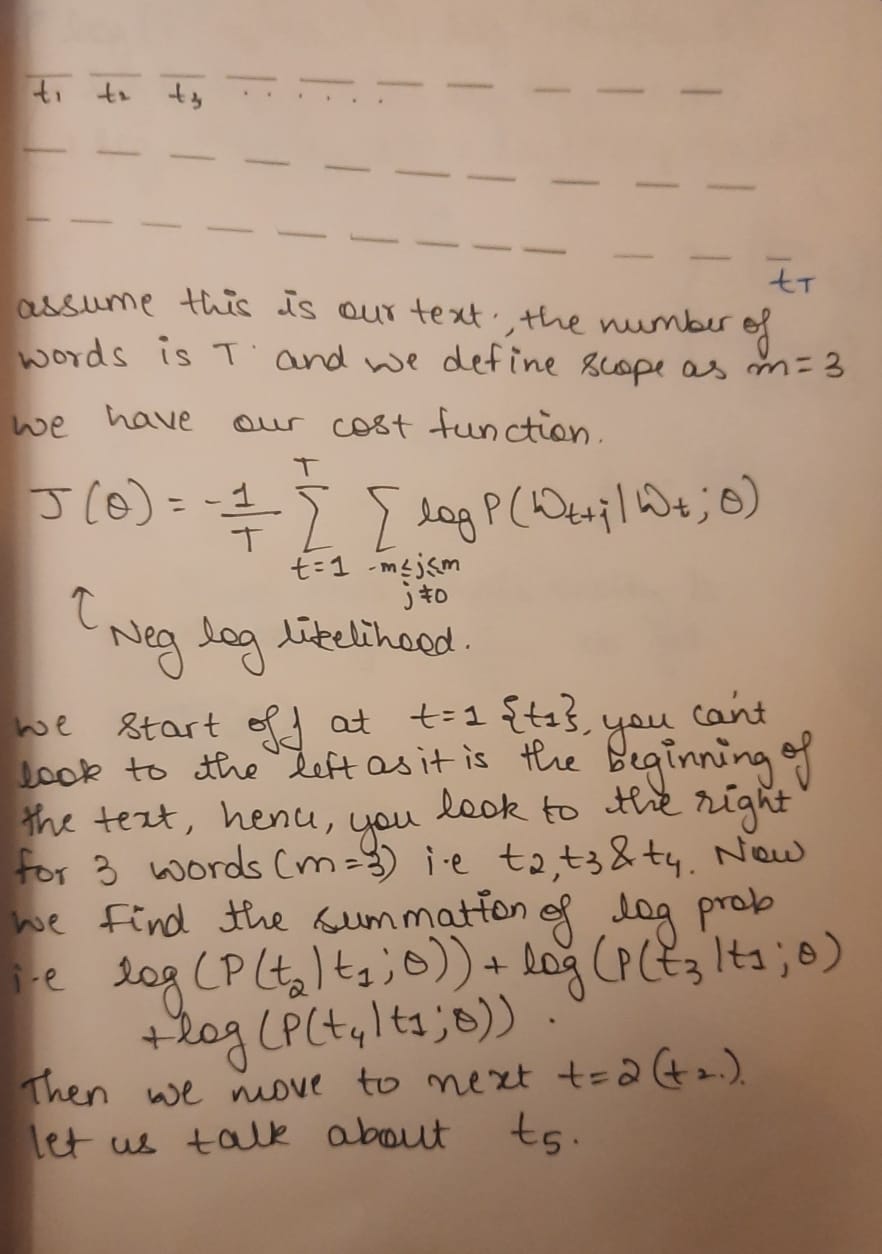 t1 t2 t3 . . . . . .
tT
assume this is our text., the number of
words is T. and we define scope as m=3
we have our cost function.
J(θ) = -1/T T∑t=1 ∑-m≤j≤m j≠0 log P(Wt+j|Wt;θ)
↑ Neg log likelihood.
we start off at t=1 {t1}, you can't
look to the left as it is the beginning of
the text, hence, you look to the right
for 3 words (m=3) i.e t2,t3 & t4. Now
we find the summation of log prob
i.e log(P(t2|t1;θ)) + log(P(t3|t1;θ)
+log(P(t4|t1;θ)).
Then we move to next t=2 (t2.).
let us talk about t5.